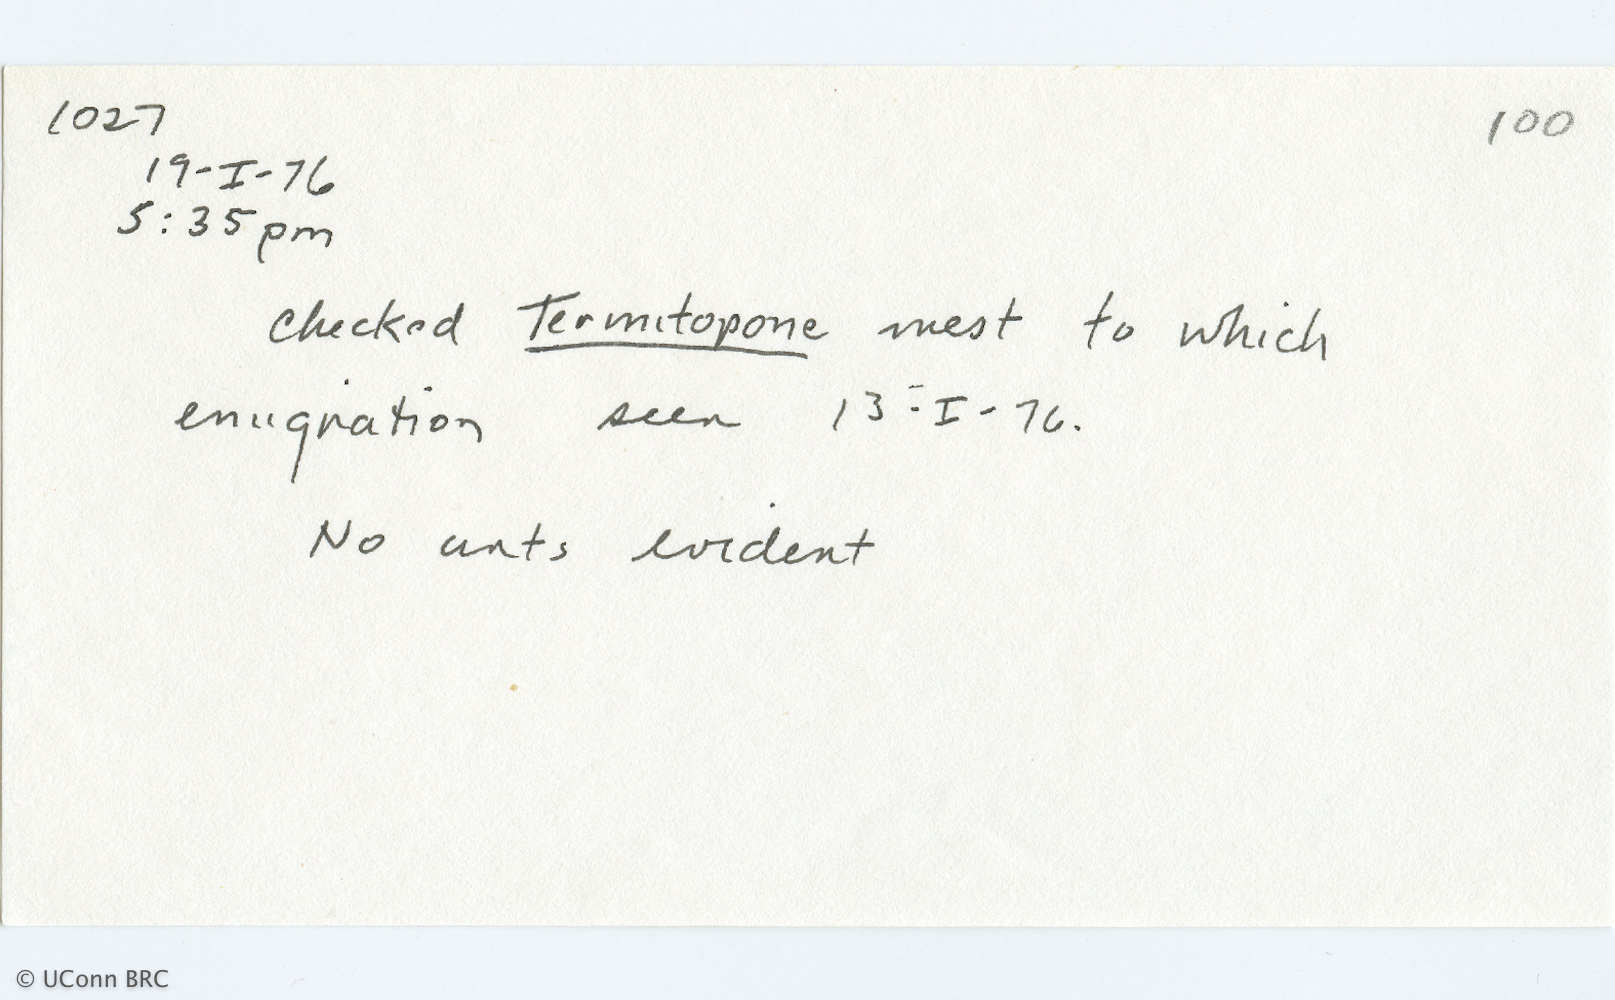 1027
100
19-I-76
5:35pm
checked Termitopone nest to which
emigration seen 13-I-76.
No ants evident
© UConn BRC